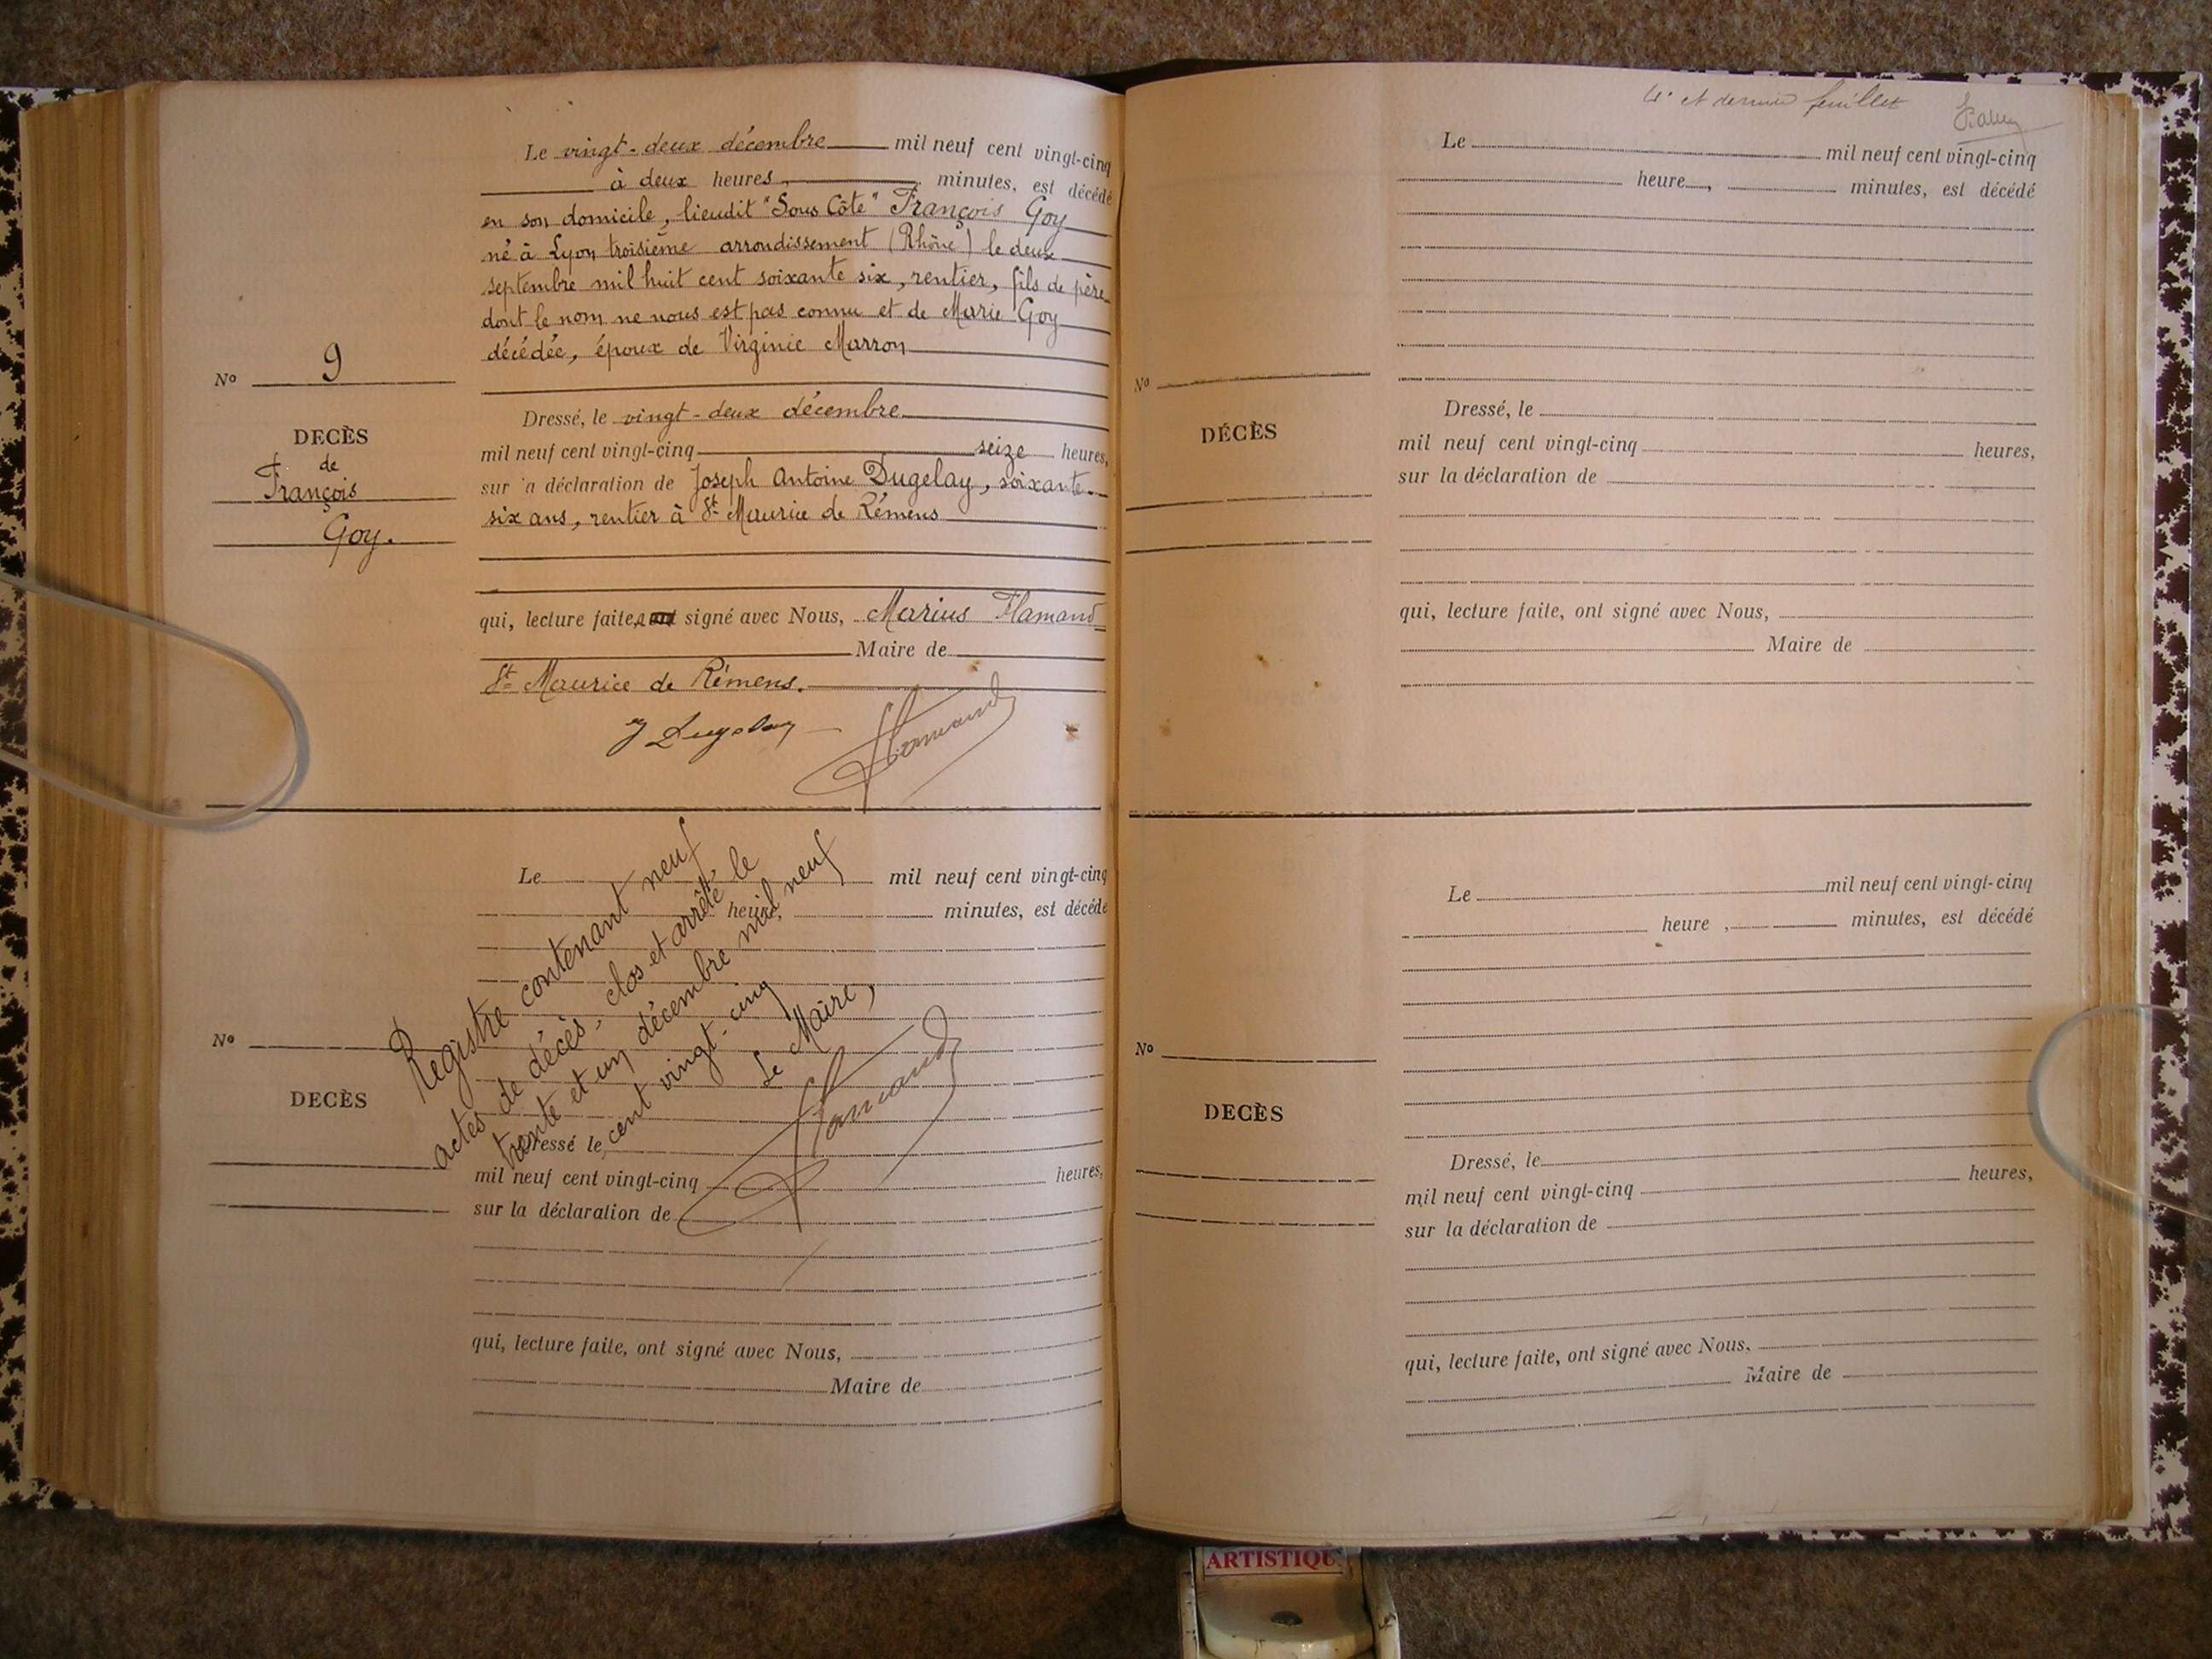 Le vingt-deux décembre mil neuf cent vingt-cinq
à deux heures, minutes, est décédé
en son domicile, lieudit "Sous Côte" François Goy
né à Lyon troisième arrondissement (Rhône) le deux
septembre mil huit cent soixante six, rentier, fils de père
dont le nom ne nous est pas connu et de Marie Goy
décédée, époux de Virginie Marron
No 9
DECÈS
de
François
Goy.
Dressé, le vingt-deux décembre
mil neuf cent vingt-cinq seize heures,
sur a déclaration de Joseph Antoine Dugelay, soixante-
six ans, rentier à St Maurice de Rémens
qui, lecture faite, signé avec Nous, Marius Flamand
Maire de
St Maurice de Rémens.
J Dugelay Flamand
Le mil neuf cent vingt-cinq
heure, minutes, est décédé
No
DECÈS
Registre contenant neuf
actes de décès, clos et arrêté le
trente et un décembre mil neuf
cent vingt-cinq
Le Maire,
Flamand
Dressé le,
mil neuf cent vingt-cinq heures,
sur la déclaration de
qui, lecture faite, ont signé avec Nous,
Maire de
4e et dernier feuillet
Le mil neuf cent vingt-cinq
heure, minutes, est décédé
No
DÉCÈS
Dressé, le
mil neuf cent vingt-cinq heures,
sur la déclaration de
qui, lecture faite, ont signé avec Nous,
Maire de
Le mil neuf cent vingt-cinq
heure, minutes, est décédé
No
DECÈS
Dressé, le
mil neuf cent vingt-cinq heures,
sur la déclaration de
qui, lecture faite, ont signé avec Nous,
Maire de
ARTISTIQU